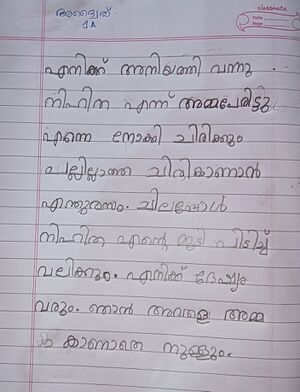 classmate
Date
Page
അദ്വൈത്
1A
എനിക്ക് അനിയത്തി വന്നു
നിഹിത എന്ന് അമ്മപേരിട്ടു
എന്നെ നോക്കി ചിരിക്കും
പല്ലില്ലാത്ത ചിരികാണാൻ
എന്തുരസം. ചിലപ്പോൾ
നിഹിത എന്റെ മുടി പിടിച്ച്
വലിക്കും. എനിക്ക് ദേഷ്യം
വരും. ഞാൻ അവളെ അമ്മ
കാണാതെ നുള്ളും.